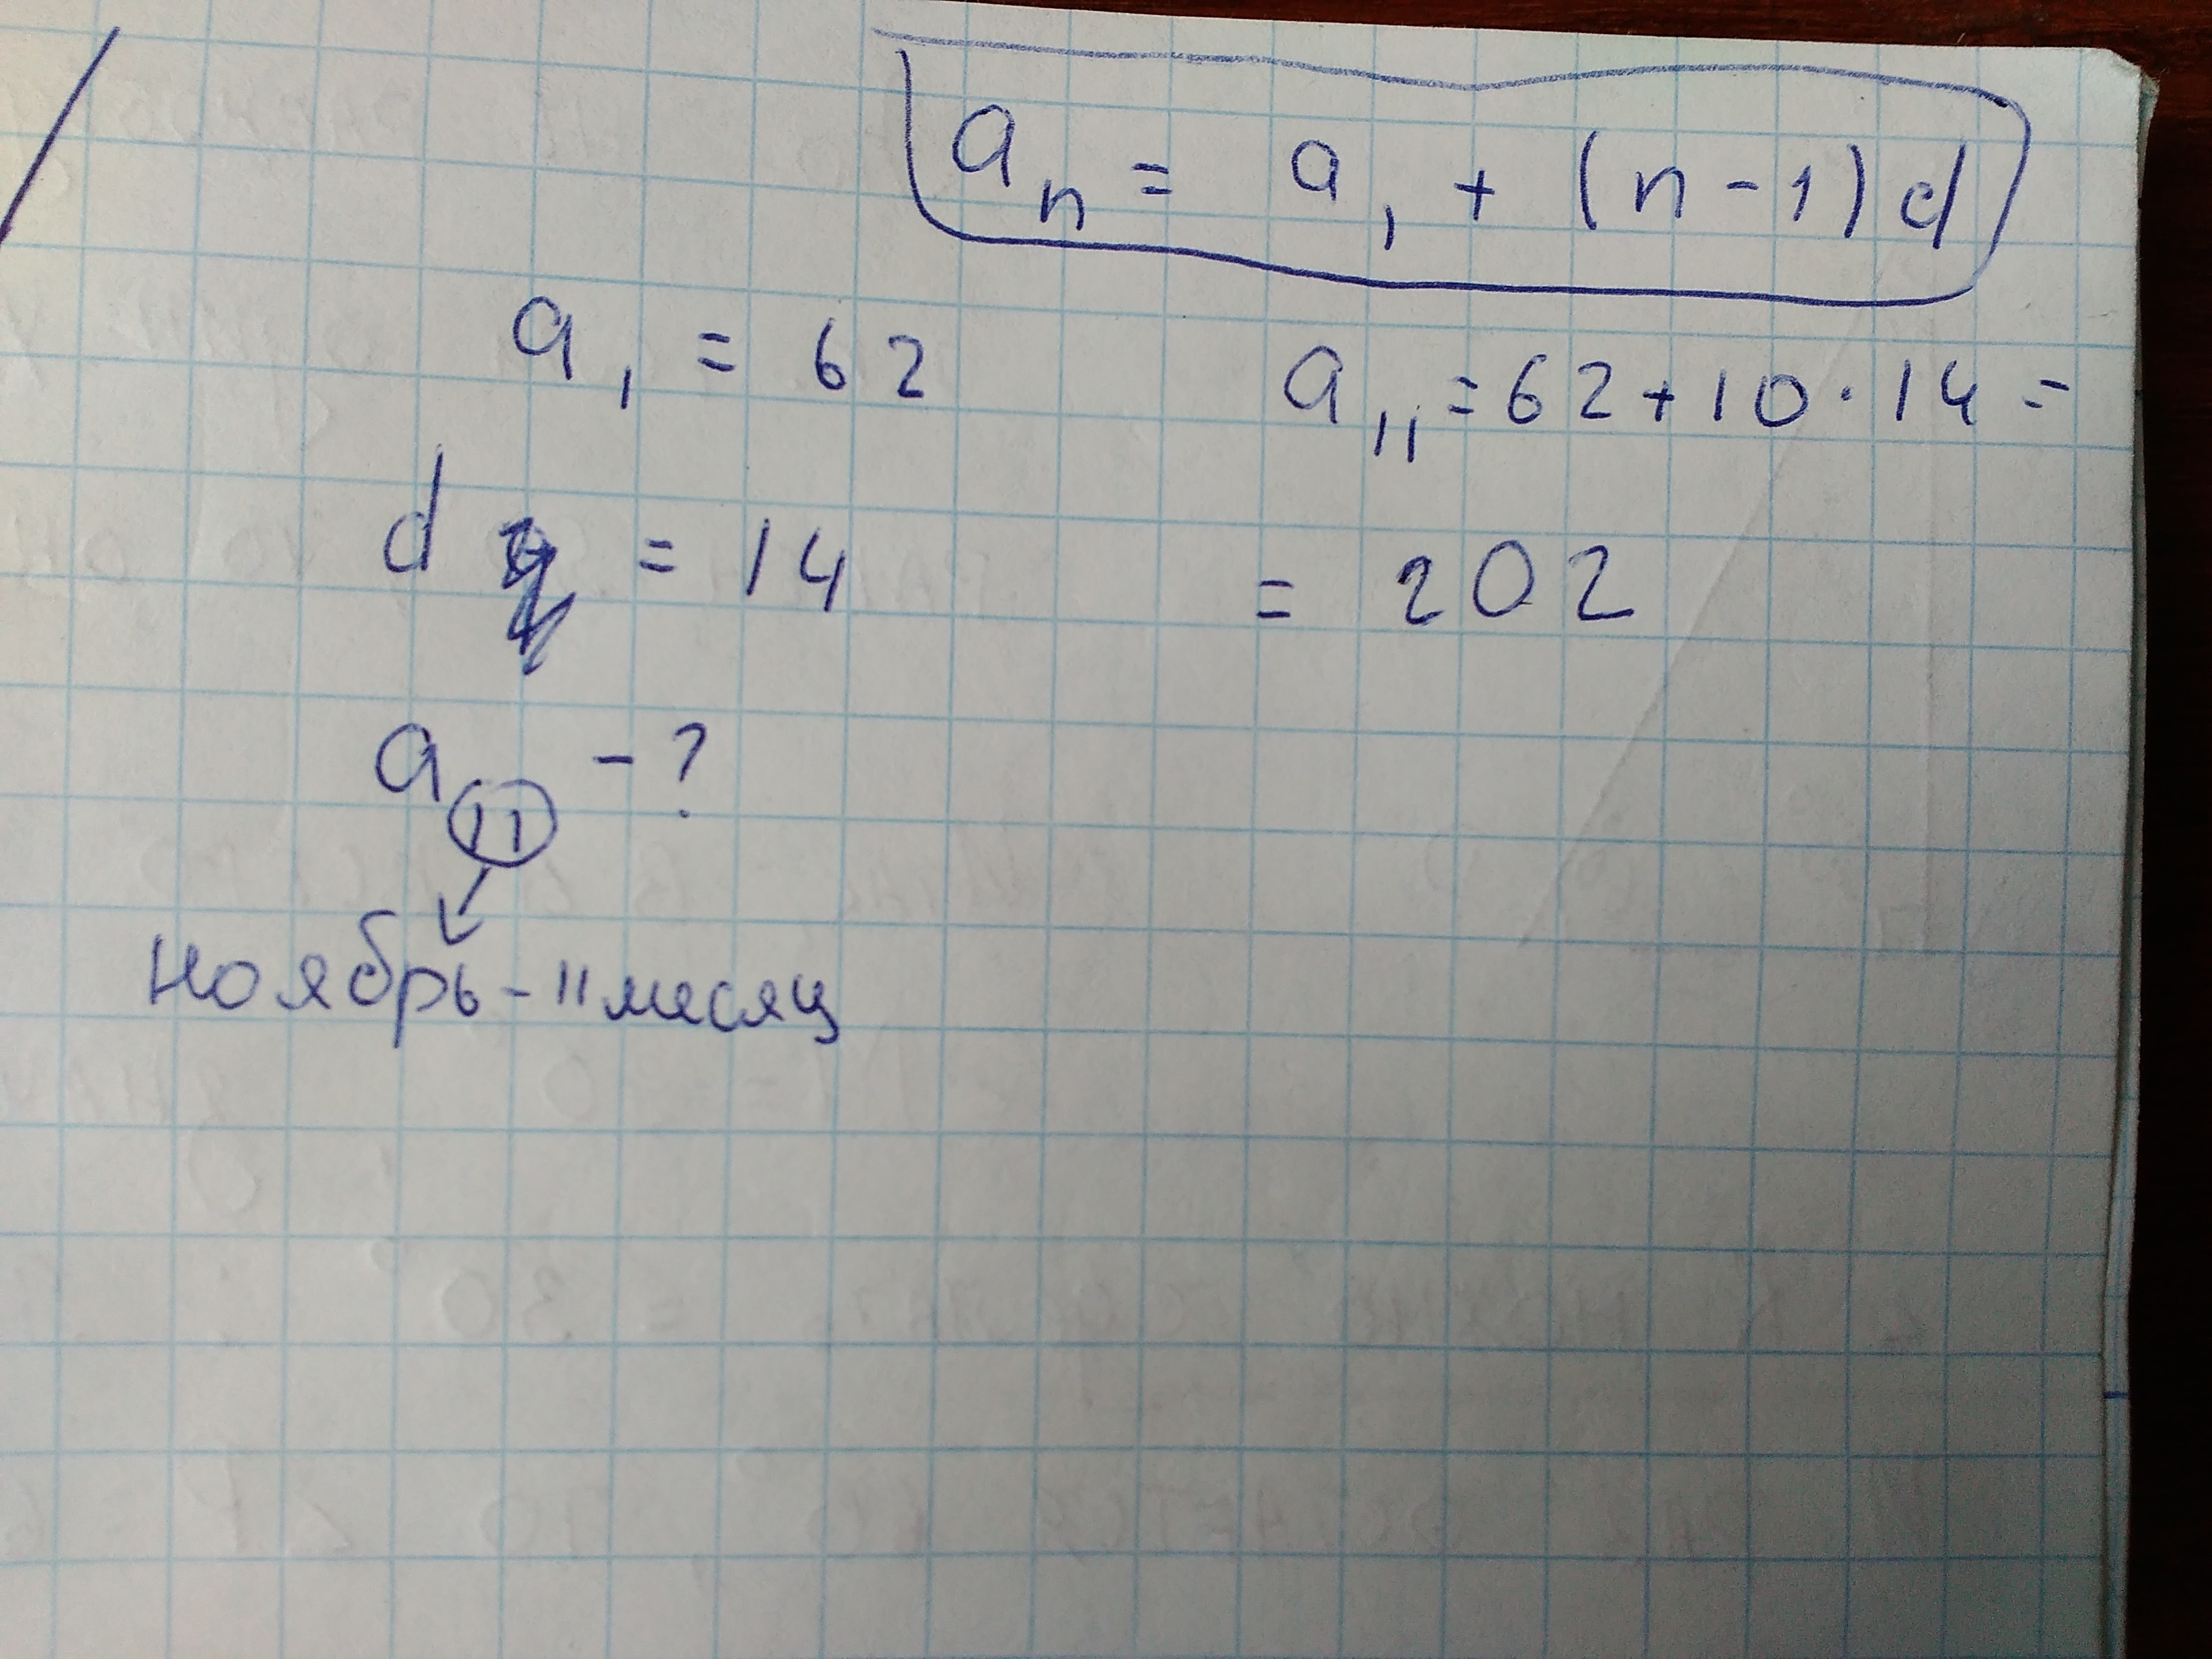 aₙ = a₁ + (n-1)d
a₁ = 62
d = 14
a₁₁ - ?
ноябрь - 11 месяц
a₁₁ = 62 + 10 · 14 =
= 202